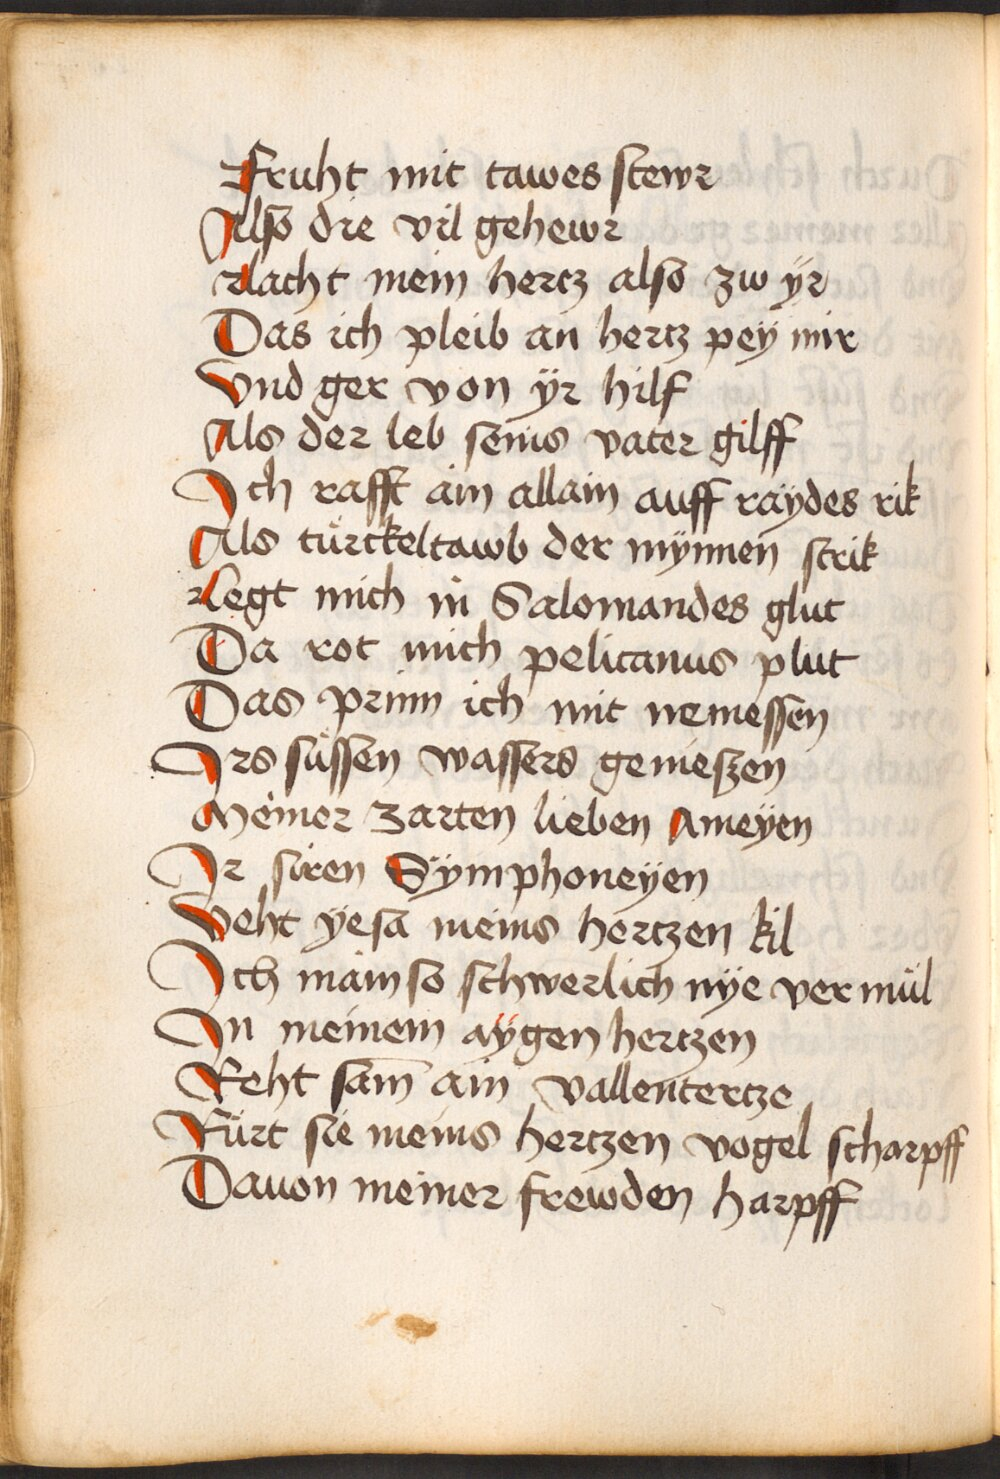 Fruht mit tawes stewr
Also die vil gehewr
Macht mein hertz also zw ÿr
Das ich pleib an hertz peÿ mir
Vnd ger von ÿr hilf
Als der leb seins vater gilff
Ich rafft ain allain auff raÿdes rik
Als türckeltawb der mÿnnen strik
Legt mich in Salomandes glut
Da rot mich pelicanus plut
Das prinn ich mit nemessen
Irs süssen wassers genieszen
Meiner zarten lieben Ameÿen
Ir siren Sÿmphoneÿen
Veht ÿesa meins hertzen kil
Ich main so schwerlich nÿe vermül
In meinem aÿgen hertzen
Reht sam ain vallentertze
Fürt sie meins hertzen vogel scharpff
Dauon meiner frewden harpff